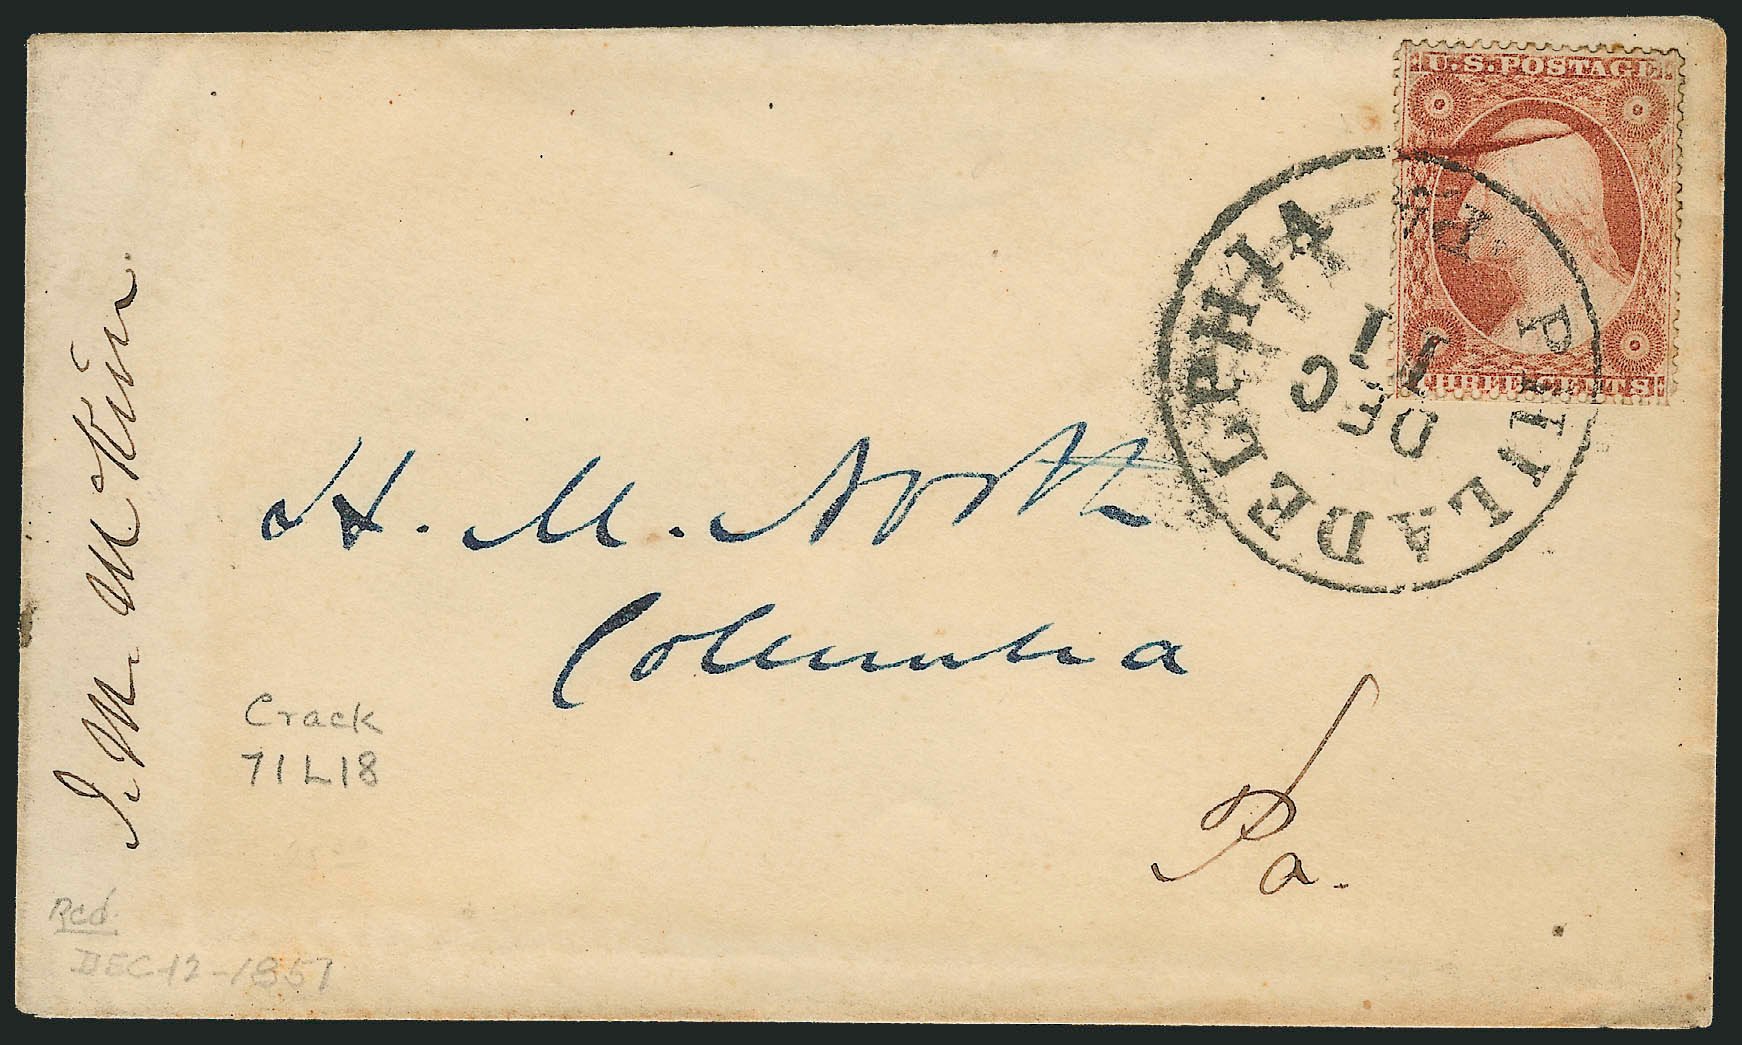 U.S. POSTAGE
THREE CENTS
PHILADELPHIA Pa.
DEC
11
H. M. North
Columbia
Pa.
Crack
71L18
Rcd.
DEC-12-1857